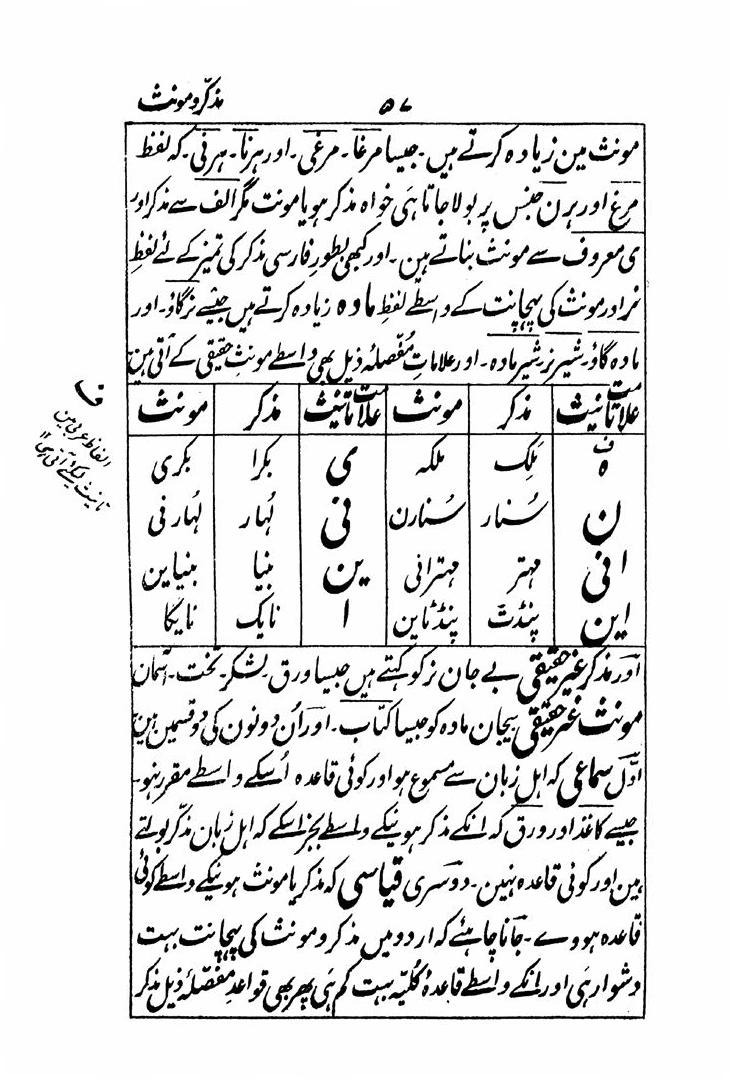 مذکر و مونث
۵۷
مونث مین زیادہ کرتے ہیں۔ جیسا مرغا۔ مرغی۔ اور ہرنا۔ ہرنی۔ کہ لفظ
مرغ اور ہرن جنس پر بولا جاتا ہی خواہ مذکر ہو یا مونث مگر الف سے مذکر اور
ی معروف سے مونث بناتے ہین۔ اور کبھی بطور فارسی مذکر کی تمیز کے لئے لفظِ
نر اور مونث کی پہچانت کے واسطے لفظِ مادہ زیادہ کرتے ہیں جیسے نرگاؤ۔ اور
مادہ گاؤ۔ شیر نر شیر مادہ۔ اور علاماتِ مُفصلۂ ذیل بھی واسطے مونثِ حقیقی کے آتی ہین
علامات تانیث مذکر مونث علامات تانیث مذکر مونث
ہ ف مَلِک ملکہ ی بکرا بکری
ن سُنار سُنارن نی لُہار لُہارنی
انی مہتر مہترانی ین بنیا بنیاین
این پنڈت پنڈتاین ا نایک نایکا
ف
الفاظ عربی مین
تانیث کیلئے آتی ہی ۱۱
اور مذکر غیر حقیقی بے جان نر کو کہتے ہیں جیسا ورق۔ لشکر۔ تخت۔ آسمان
مونث غیر حقیقی بیجان مادہ کو جیسا کتاب۔ اور اُن دونون کی دو قسمین ہین
اوّل سماعی کہ اہلِ زبان سے مسموع ہو اور کوئی قاعدہ اُسکے واسطے مقرر نہو۔
جیسے کاغذ اور ورق کہ انکے مذکر ہونیکے واسطے بجز اسکے کہ اہل زبان مذکر بولتے
ہین اور کوئی قاعدہ نہین۔ دوسری قیاسی کہ مذکر یا مونث ہونیکے واسطے کوئی
قاعدہ ہووے۔ جاننا چاہئے کہ اردو میں مذکر و مونث کی پہچانت بہت
دشوار ہی اور انکے واسطے قاعدۂ کُلیّہ بہت کم ہی پھر بھی قواعدِ مفصّلۂ ذیل مذکر